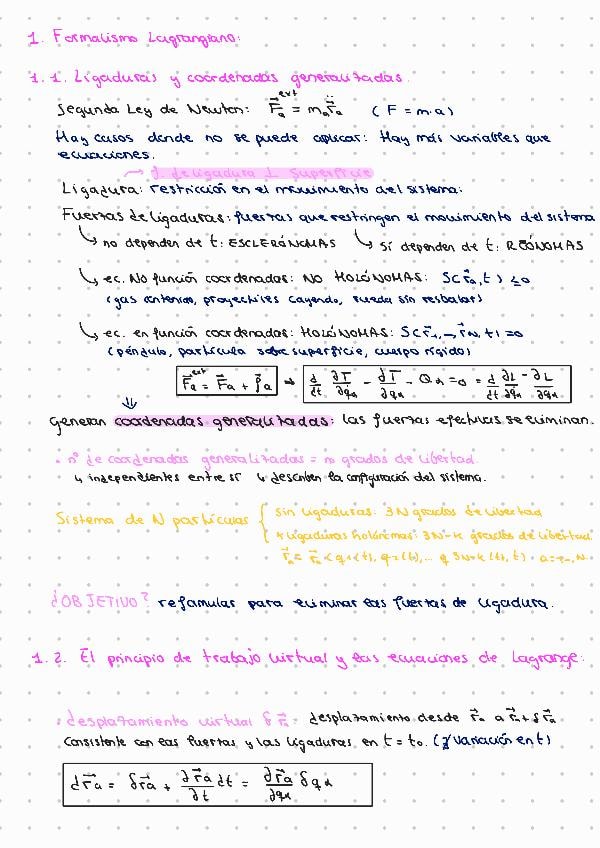 1. Formalismo Lagrangiano:
1.1. Ligaduras y coordenadas generalizadas.
Segunda Ley de Newton: F⃗ₐᵉˣᵗ = mₐ r⃗̈ₐ ( F = m·a )
Hay casos donde no se puede aplicar: Hay más variables que
ecuaciones.
→ f. de ligadura ⊥ superficie
Ligadura: restricción en el movimiento del sistema:
Fuerzas de ligaduras: fuerzas que restringen el movimiento del sistema
↳ no dependen de t: ESCLERÓNOMAS ↳ sí dependen de t: REÓNOMAS
↳ ec. No función coordenadas: NO HOLÓNOMAS: S(r⃗ₐ, t) ≤ 0
(gas contenido, proyectiles cayendo, rueda sin resbalar)
↳ ec. en función coordenadas: HOLÓNOMAS: S(r⃗₁, ..., r⃗N, t) = 0
(péndulo, partícula sobre superficie, cuerpo rígido)
F⃗ₐᵉˣᵗ = F⃗ₐ + ρ⃗ₐ → d/dt ∂T/∂q̇α − ∂T/∂qα − Qα = 0 = d/dt ∂L/∂q̇α − ∂L/∂qα
⇓
Generan coordenadas generalizadas: las fuerzas efectivas se eliminan.
. nº de coordenadas generalizadas = nº grados de libertad.
↳ independientes entre sí ↳ describen la configuración del sistema.
Sistema de N partículas { sin ligaduras: 3N grados de libertad
k ligaduras holónomas: 3N-k grados de libertad.
r⃗ₐ = r⃗ₐ < q₁(t), q₂(t), ... q 3N-k (t), t) . a=1...N.
¿OBJETIVO? reformular para eliminar las fuerzas de ligadura.
1.2. El principio de trabajo virtual y las ecuaciones de Lagrange:
. desplazamiento virtual δr⃗ₐ = desplazamiento desde r⃗ₐ a r⃗ₐ+δr⃗ₐ
consistente con las fuerzas y las ligaduras en t = t₀. (∄ variación en t)
dr⃗ₐ = δr⃗ₐ + ∂r⃗ₐ/∂t dt = ∂r⃗ₐ/∂qα δqα